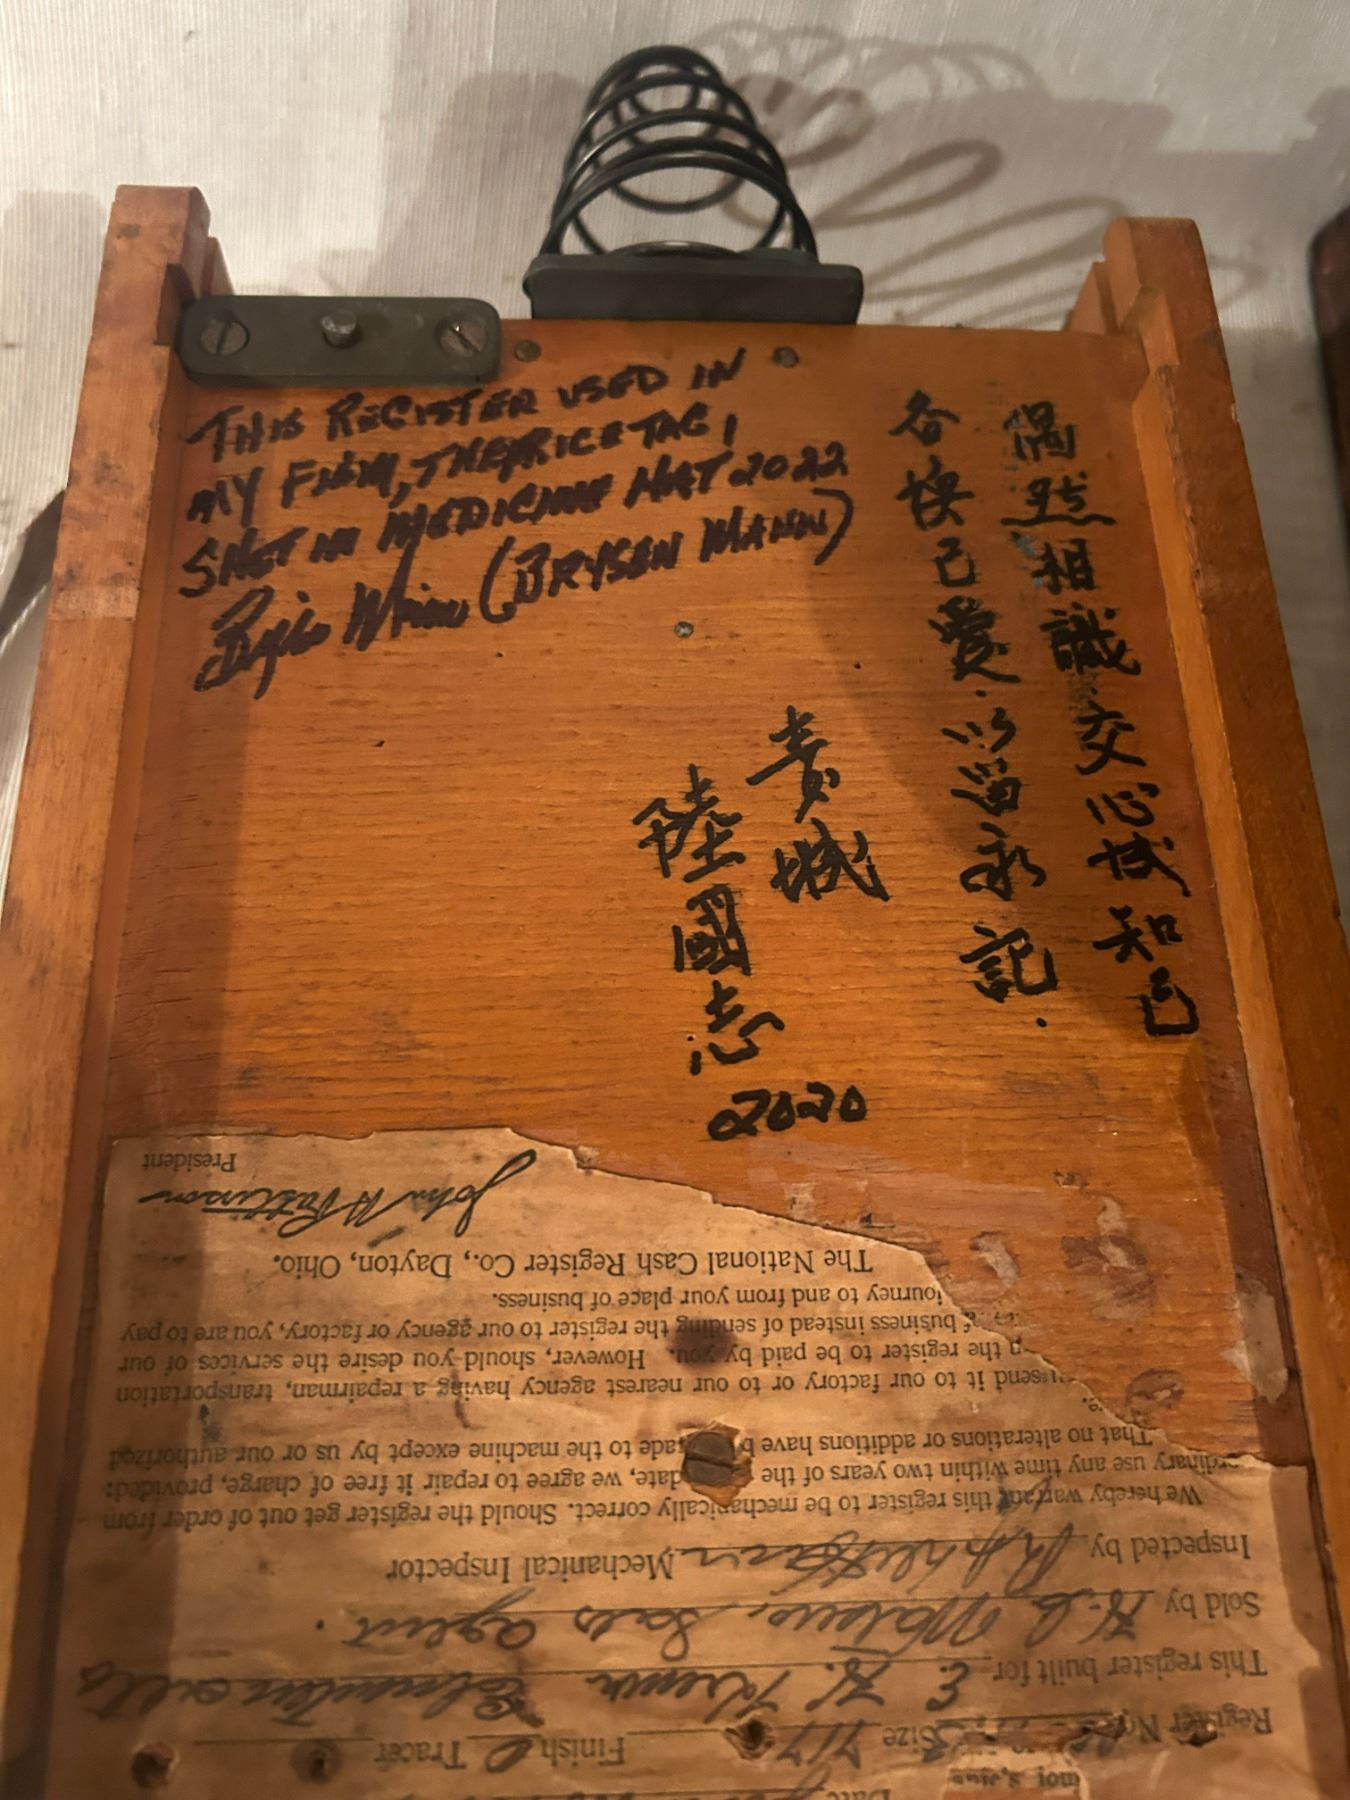 THIS REGISTER USED IN
MY FILM, THE PRICE TAG,
SHOT IN MEDICINE HAT 2022
(BRYSEN MANN)
偶然相識交心成知己
各換己愛.以留永記.
青城
陸國志
2020
Date
Register No. Size 717 Finish Tracer
This register built for E. H.
Sold by H. C. Sales agent.
Inspected by Mechanical Inspector
We hereby warrant this register to be mechanically correct. Should the register get out of order from
ordinary use any time within two years of the date, we agree to repair it free of charge, provided:
That no alterations or additions have been made to the machine except by us or our authorized
send it to our factory or to our nearest agency having a repairman, transportation
the register to be paid by you. However, should you desire the services of our
of business instead of sending the register to our agency or factory, you are to pay
journey to and from your place of business.
The National Cash Register Co., Dayton, Ohio.
John H Patterson
President